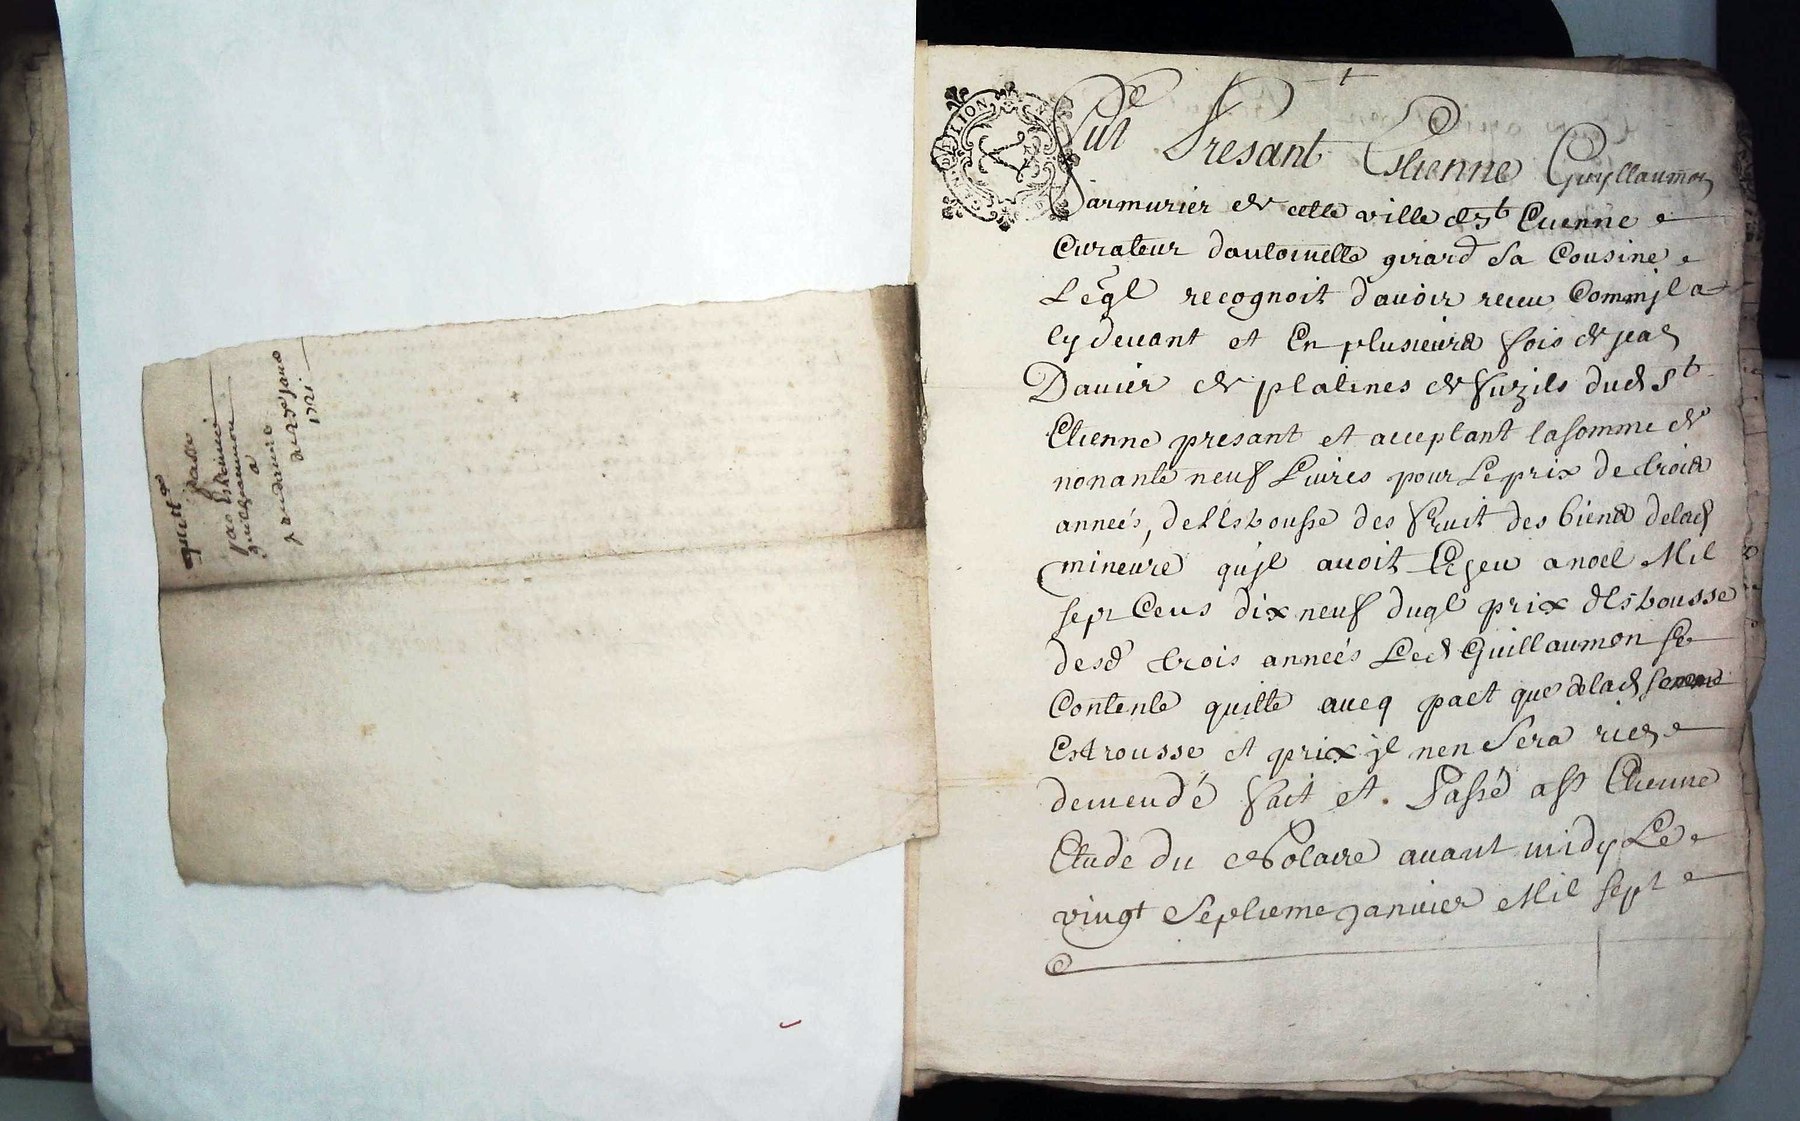 quitte
passé
par estienne
guillaumon
a
jean davier
du 27e janv
1721
LION
Fut Presant Estienne Guyllaumon
armurier de cette ville de st Etienne
Curateur dantoinette girard sa Cousine
Leql recognoit davoir receu Comm jl a
cy devant et En plusieurs fois de jean
Davier de platines de fuzils dud St
Etienne presant et acceptant la somme de
nonante neuf Livres pour Le prix de trois
années, de l'Estrousse des fruit des biens de lad
mineure qujl avoit Pr jeu a noel Mil
sept Cens dix neuf duql prix d'Estrousse
desd trois années Led Guillaumon se
Contente quitte avecq pact que de lad
Estrousse et prix jl nen sera rien
demendé fait et Passé a St Etienne
Etude du Notaire avant midy Le
vingt Septieme janvier Mil sept